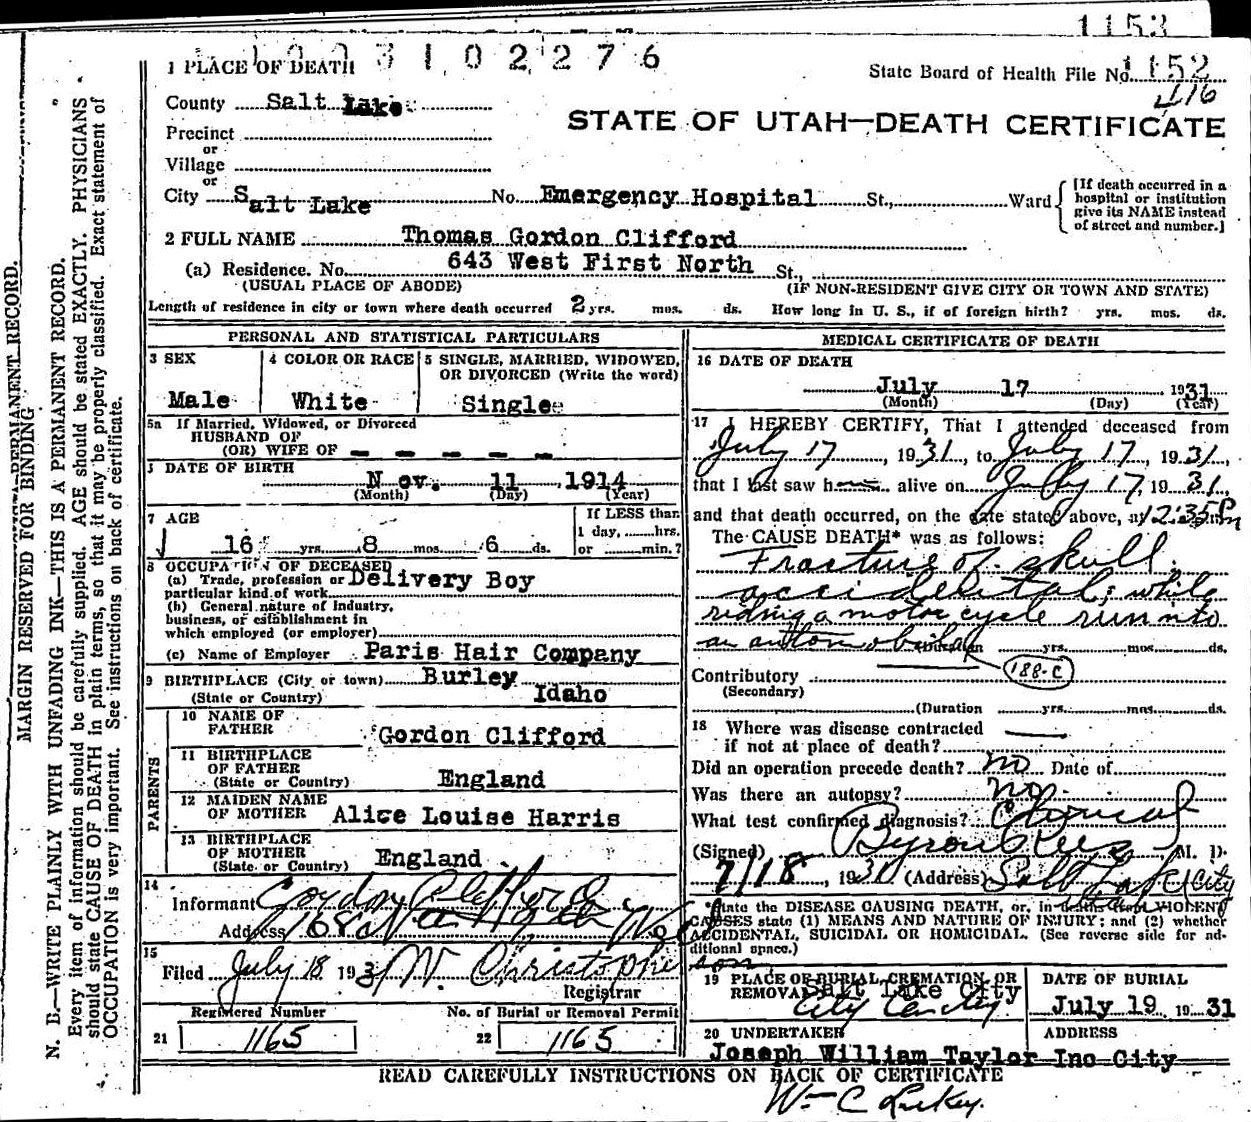 1153
1003102276
1 PLACE OF DEATH
State Board of Health File No. 1152
416
County Salt Lake
STATE OF UTAH—DEATH CERTIFICATE
Precinct
or
Village
or
City Salt Lake No. Emergency Hospital St., Ward
[If death occurred in a hospital or institution give its NAME instead of street and number.]
2 FULL NAME Thomas Gordon Clifford
(a) Residence. No. 643 West First North St.,
(USUAL PLACE OF ABODE) (IF NON-RESIDENT GIVE CITY OR TOWN AND STATE)
Length of residence in city or town where death occurred 2 yrs. mos. ds. How long in U. S., if of foreign birth? yrs. mos. ds.
PERSONAL AND STATISTICAL PARTICULARS
3 SEX
Male
4 COLOR OR RACE
White
5 SINGLE, MARRIED, WIDOWED, OR DIVORCED (Write the word)
Single
5a If Married, Widowed, or Divorced
HUSBAND OF
(OR) WIFE OF – – – – –
DATE OF BIRTH
Nov. 11 1914
(Month) (Day) (Year)
7 AGE
16 yrs. 8 mos. 6 ds.
If LESS than
1 day, hrs.
or min.?
8 OCCUPATION OF DECEASED
(a) Trade, profession or particular kind of work Delivery Boy
(b) General nature of industry, business, or establishment in which employed (or employer)
(c) Name of Employer Paris Hair Company
9 BIRTHPLACE (City or town) Burley
(State or Country) Idaho
PARENTS
10 NAME OF FATHER Gordon Clifford
11 BIRTHPLACE OF FATHER (State or Country) England
12 MAIDEN NAME OF MOTHER Alice Louise Harris
13 BIRTHPLACE OF MOTHER (State or Country) England
14
Informant Gordon Clifford
Address
15
Filed July 18 1931 W. Christopherson
Registrar
Registered Number
21 1165
No. of Burial or Removal Permit
22 1165
MEDICAL CERTIFICATE OF DEATH
16 DATE OF DEATH
July 17 1931
(Month) (Day) (Year)
17 I HEREBY CERTIFY, That I attended deceased from
July 17, 1931, to July 17, 1931,
that I last saw h alive on July 17, 1931,
and that death occurred, on the date stated above, at 12:35 P m
The CAUSE DEATH* was as follows:
Fracture of skull
accidental; while
riding a motorcycle run into
an automobile yrs. mos. ds.
188-C
Contributory
(Secondary)
(Duration yrs. mos. ds.
18 Where was disease contracted
if not at place of death?
Did an operation precede death? no Date of
Was there an autopsy? no
What test confirmed diagnosis? Clinical
(Signed) Byron Rees M. D.
7/18, 1931 (Address) Salt Lake City
*State the DISEASE CAUSING DEATH, or, in deaths from VIOLENT
CAUSES state (1) MEANS AND NATURE OF INJURY; and (2) whether
ACCIDENTAL, SUICIDAL OR HOMICIDAL. (See reverse side for ad-
ditional space.)
19 PLACE OF BURIAL, CREMATION, OR REMOVAL
Salt Lake City
DATE OF BURIAL
July 19 1931
20 UNDERTAKER
Joseph William Taylor Inc City
ADDRESS
READ CAREFULLY INSTRUCTIONS ON BACK OF CERTIFICATE
Wm C
MARGIN RESERVED FOR BINDING
N. B.—WRITE PLAINLY WITH UNFADING INK—THIS IS A PERMANENT RECORD.
Every item of information should be carefully supplied. AGE should be stated EXACTLY. PHYSICIANS
should state CAUSE OF DEATH in plain terms, so that it may be properly classified. Exact statement of
OCCUPATION is very important. See instructions on back of certificate.